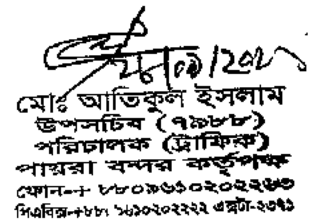 মোঃ আতিকুল ইসলাম
উপসচিব (৭৯৮৮)
পরিচালক (ট্রাফিক)
পায়রা বন্দর কর্তৃপক্ষ
ফোন-+ ৮৮০৯৬১০২০২২৬৩
পিএবিএক্স-+৮৮০ ৯৬১০২০২২২২ এক্সট-২৩৭১